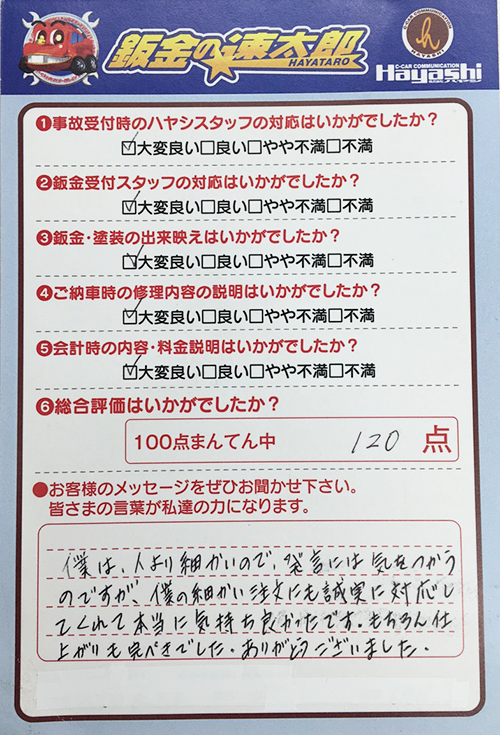 鈑金の速太郎
HAYATARO
C-CAR COMMUNICATION
HAYASHI
C-CAR COMMUNICATION
Hayashi
❶事故受付時のハヤシスタッフの対応はいかがでしたか？
☑大変良い□良い□やや不満□不満
❷鈑金受付スタッフの対応はいかがでしたか？
☑大変良い□良い□やや不満□不満
❸鈑金・塗装の出来映えはいかがでしたか？
☑大変良い□良い□やや不満□不満
❹ご納車時の修理内容の説明はいかがでしたか？
☑大変良い□良い□やや不満□不満
❺会計時の内容・料金説明はいかがでしたか？
☑大変良い□良い□やや不満□不満
❻総合評価はいかがでしたか？
100点まんてん中 120 点
●お客様のメッセージをぜひお聞かせ下さい。
皆さまの言葉が私達の力になります。
僕は、人より細かいので、発言には気をつかう
のですが、僕の細かい注文にも誠実に対応し
てくれて本当に気持ち良かったです。もちろん仕
上がりも完ぺきでした。ありがとうございました。